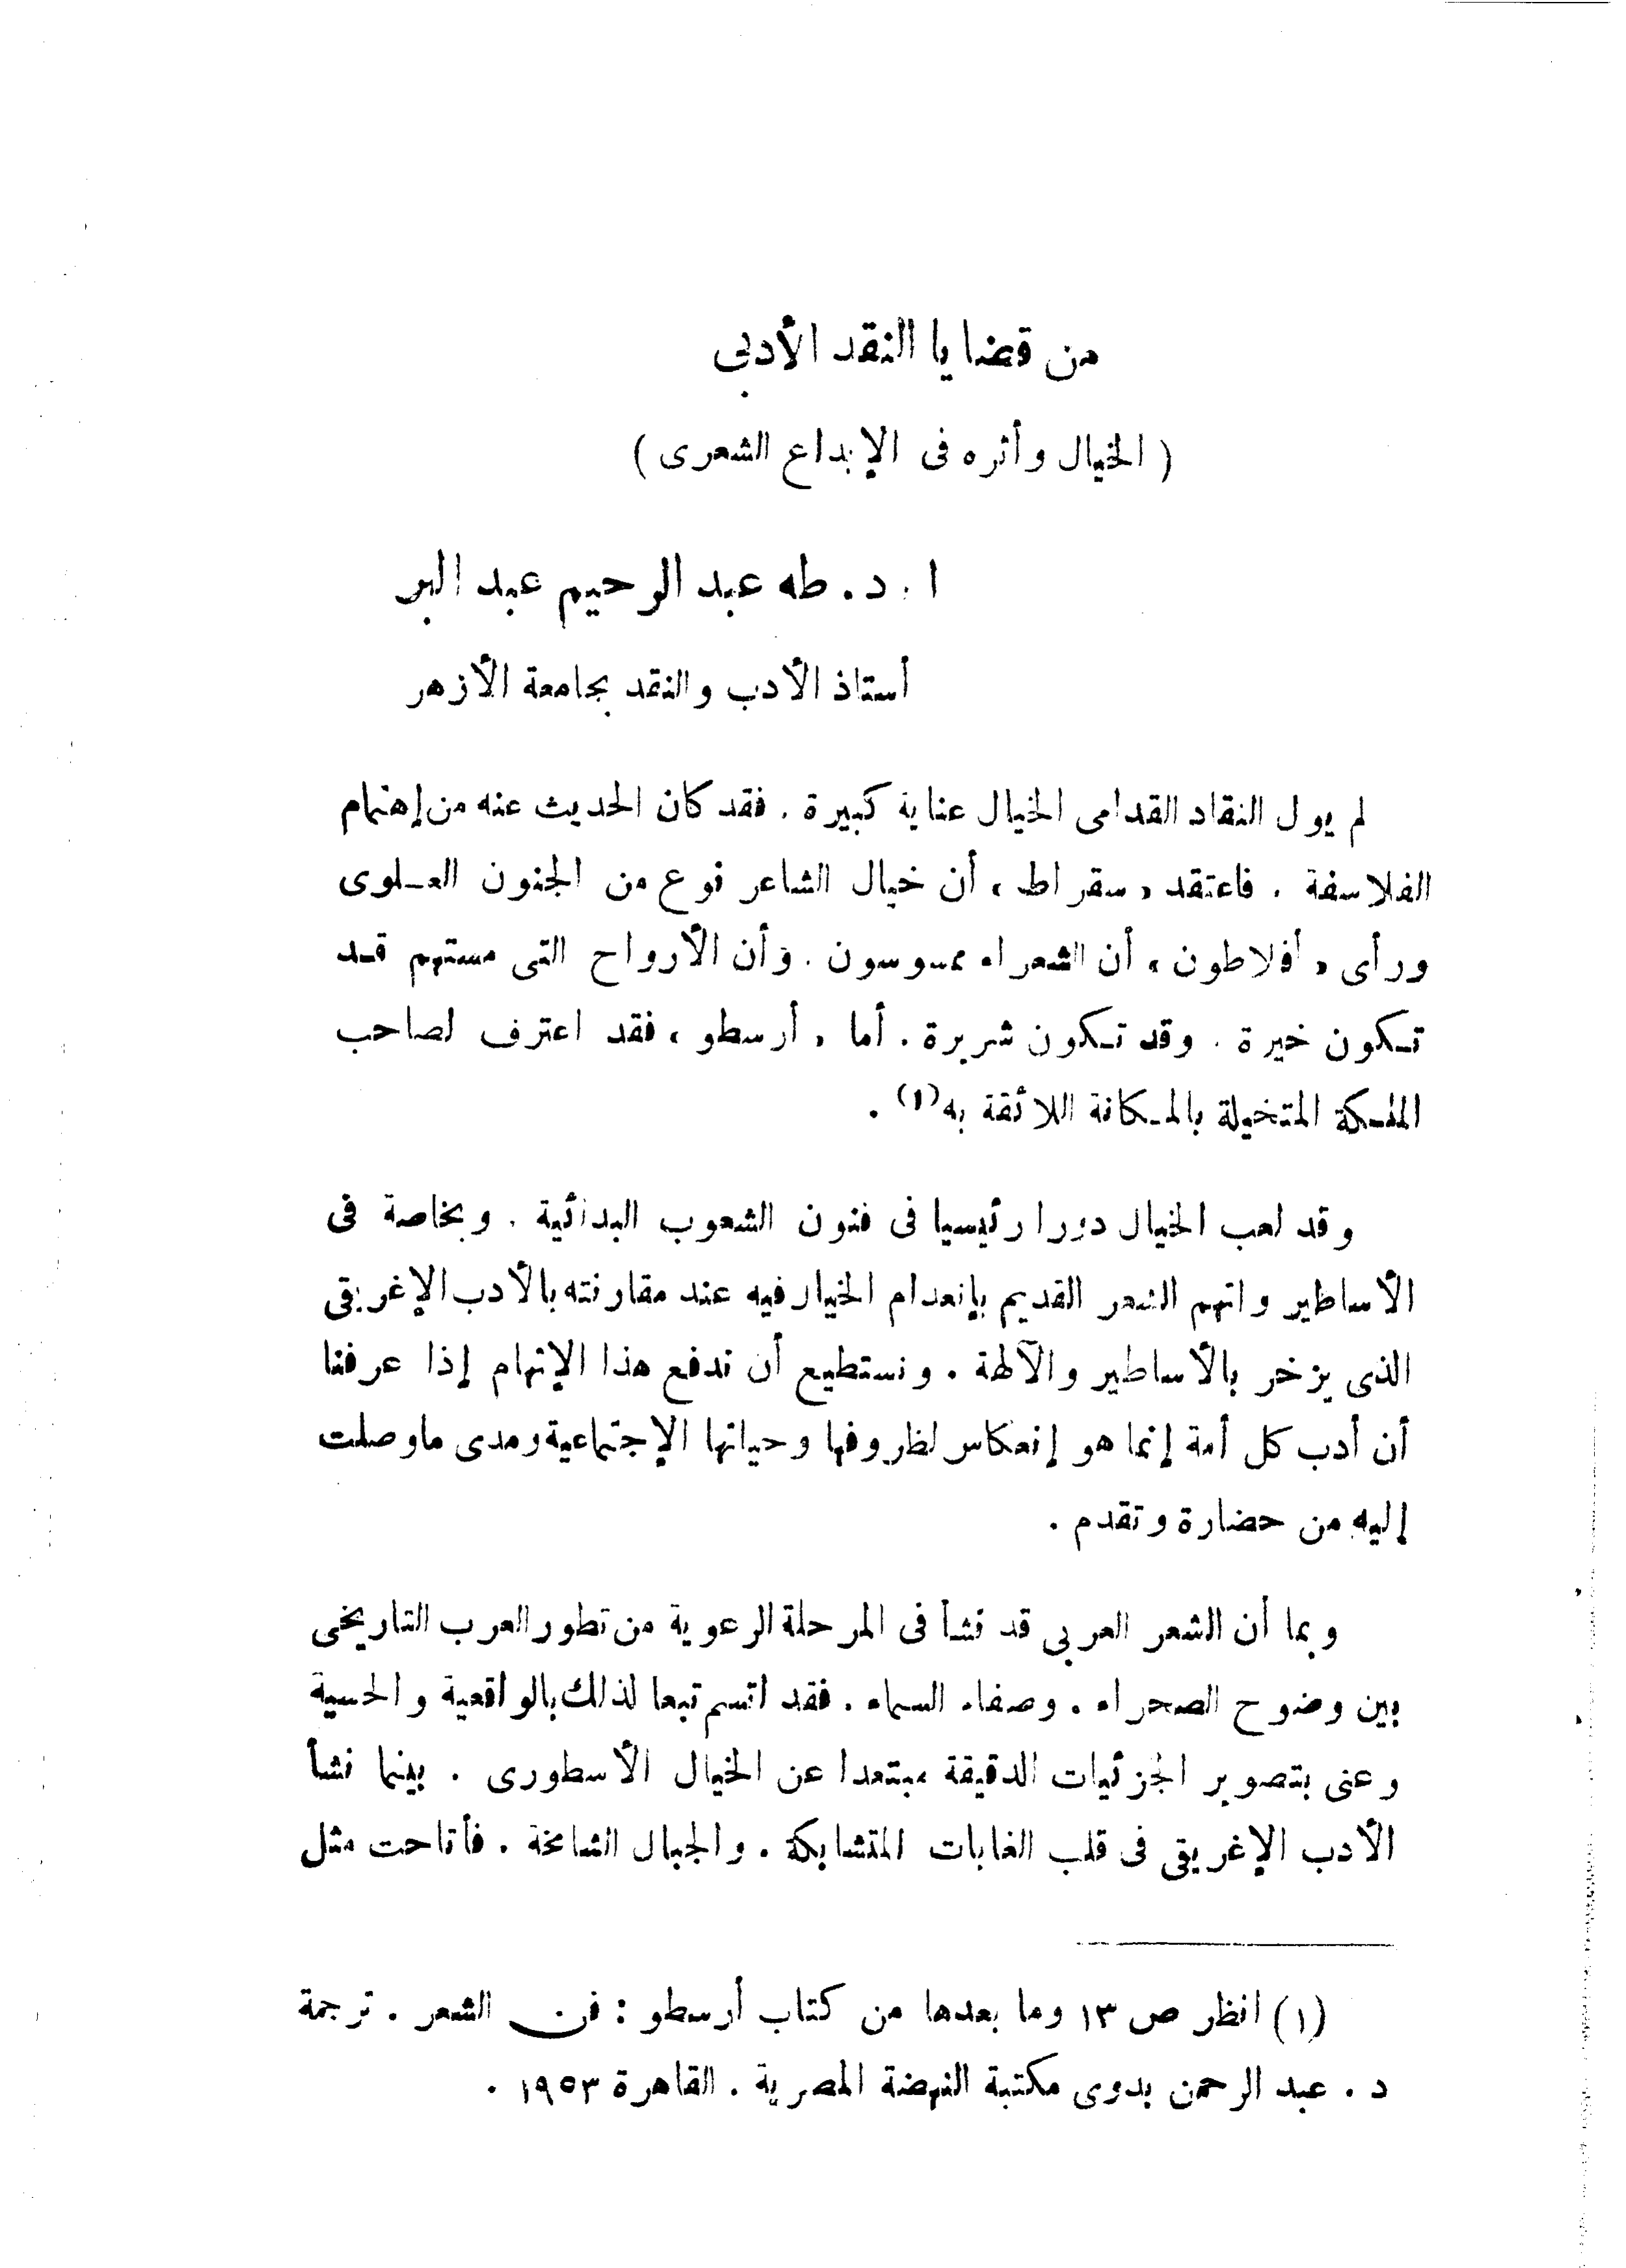 من قضايا النقد الأدبى
( الخيال وأثره فى الإبداع الشعرى )
ا . د . طه عبد الرحيم عبد البر
أستاذ الأدب والنقد بجامعة الأزهر
لم يول النقاد القدامى الخيال عناية كبيرة . فقد كان الحديث عنه من إهتمام
الفلاسفة . فاعتقد « سقراط » أن خيال الشاعر نوع من الجنون العلوى
ورأى « أفلاطون » أن الشعراء ممسوسون . وأن الأرواح التى مستهم قد
تكون خيرة . وقد تكون شريرة . أما « أرسطو » فقد اعترف لصاحب
الملكة المتخيلة بالمكانة اللائقة به(١) .
وقد لعب الخيال دورا رئيسيا فى فنون الشعوب البدائية . وبخاصة فى
الأساطير واتهم الشعر القديم بإنعدام الخيال فيه عند مقارنته بالأدب الإغريقى
الذى يزخر بالأساطير والآلهة . ونستطيع أن ندفع هذا الإتهام إذا عرفنا
أن أدب كل أمة إنما هو إنعكاس لظروفها وحياتها الإجتماعية ومدى ماوصلت
إليه من حضارة وتقدم .
وبما أن الشعر العربى قد نشأ فى المرحلة الرعوية من تطور العرب التاريخى
بين وضوح الصحراء . وصفاء السماء . فقد اتسم تبعا لذلك بالواقعية والحسية
وعنى بتصوير الجزئيات الدقيقة مبتعدا عن الخيال الأسطورى . بينما نشأ
الأدب الإغريقى فى قلب الغابات المتشابكة . والجبال الشامخة . فأتاحت مثل
(١) انظر ص ١٣ وما بعدها من كتاب أرسطو : فن الشعر . ترجمة
د . عبد الرحمن بدوى مكتبة النهضة المصرية . القاهرة ١٩٥٣ .